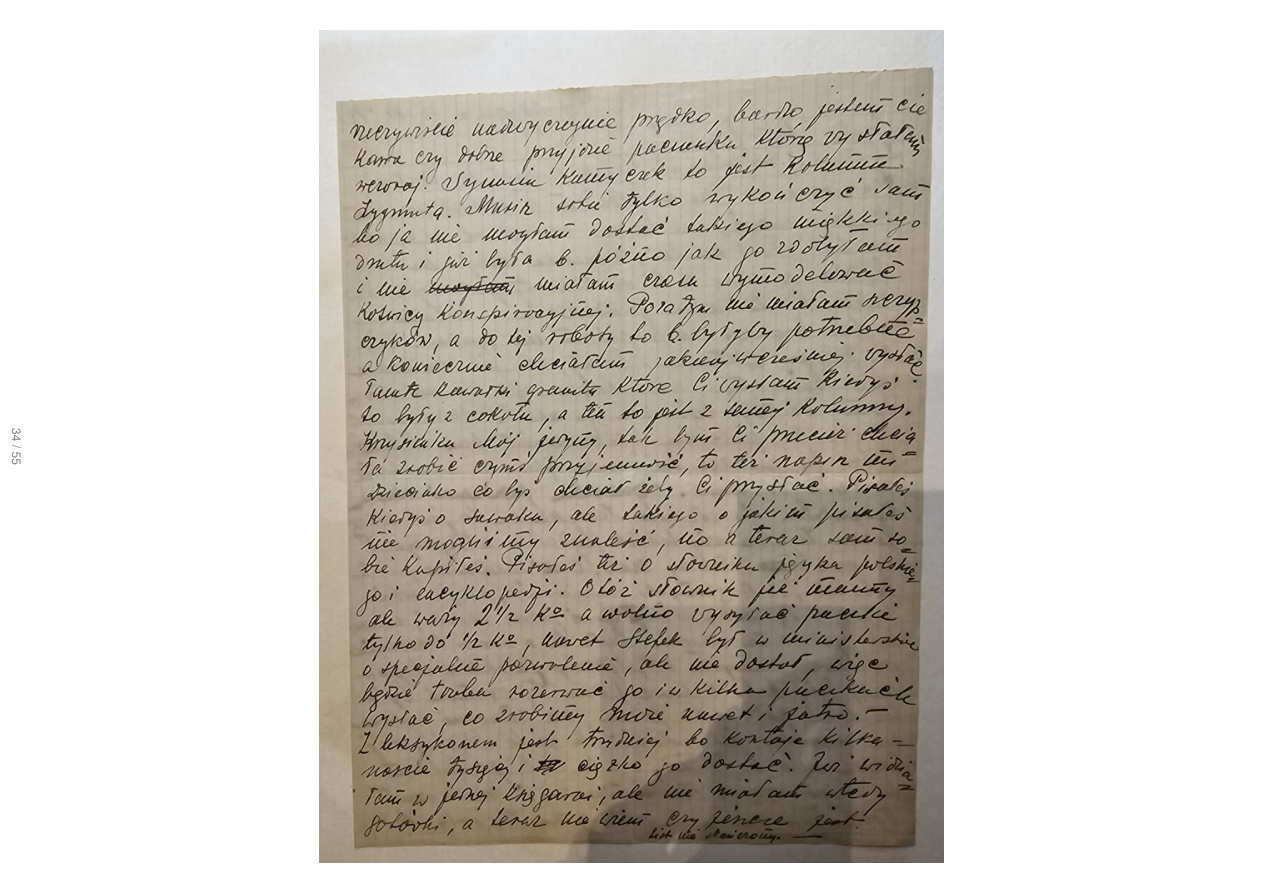 rzeczywiście nadzwyczajnie prędko, bardzo jestem cie
kawa czy dobrze przyjdzie paczuszka którą wysłałam
wczoraj. Synusiu kamyczek to jest Kolumna
Zygmunta. Musisz sobie tylko wykończyć sam
bo ja nie mogłam dostać takiego miękkiego
drutu i już było b. późno jak go zdobyłam
i nie mogłam miałam czasu wymodelować
Kotwicy Konspiracyjnej. Poza tym nie miałam szczyp=
czyków, a do tej roboty to b. byłyby potrzebne
a koniecznie chciałam jaknajwcześniej wysłać.
Tamte kawałki granitu które Ci wysłam kiedyś
to były z cokołu, a ten to jest z samej Kolumny.
Krysieńku Mój jedyny, tak bym Ci przecież chcia
ła zrobić czymś przyjemność, to też napisz mi
Dziecinko co byś chciał żeby Ci przysłać. Pisałeś
kiedyś o suwaku, ale takiego o jakim pisałeś
nie mogliśmy znaleść, no a teraz sam so=
bie kupiłeś. Pisałeś też o słowniku języka polskie=
go i encyklopedji. Otóż słownik jeź mamy
ale waży 2 1/2 Ko a wolno wysyłać paczki
tylko do 1/2 Ko, nawet Stefek był w ministerstwie
o specjalne pozwolenie, ale nie dostał, więc
będzie trzeba rozerwać go i w kilku paczkach
wysłać, co zrobimy może nawet i jutro. —
Z leksykonem jest trudniej bo kosztuje kilka—
naście tysięcy i ciężko go dostać. Już widzia=
łam w jednej księgarni, ale nie miałam wtedy
gotówki, a teraz nie wiem czy jeszcze jest.
List nie skończony. —